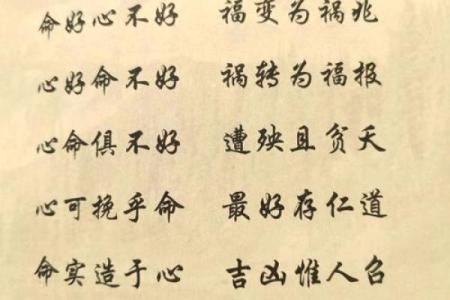 命好心不好 福变为祸兆
心好命不好 祸转为福报
心命俱不好 遭殃且贫夭
心可挽乎命 最好存仁道
命实造于心 吉凶惟人召